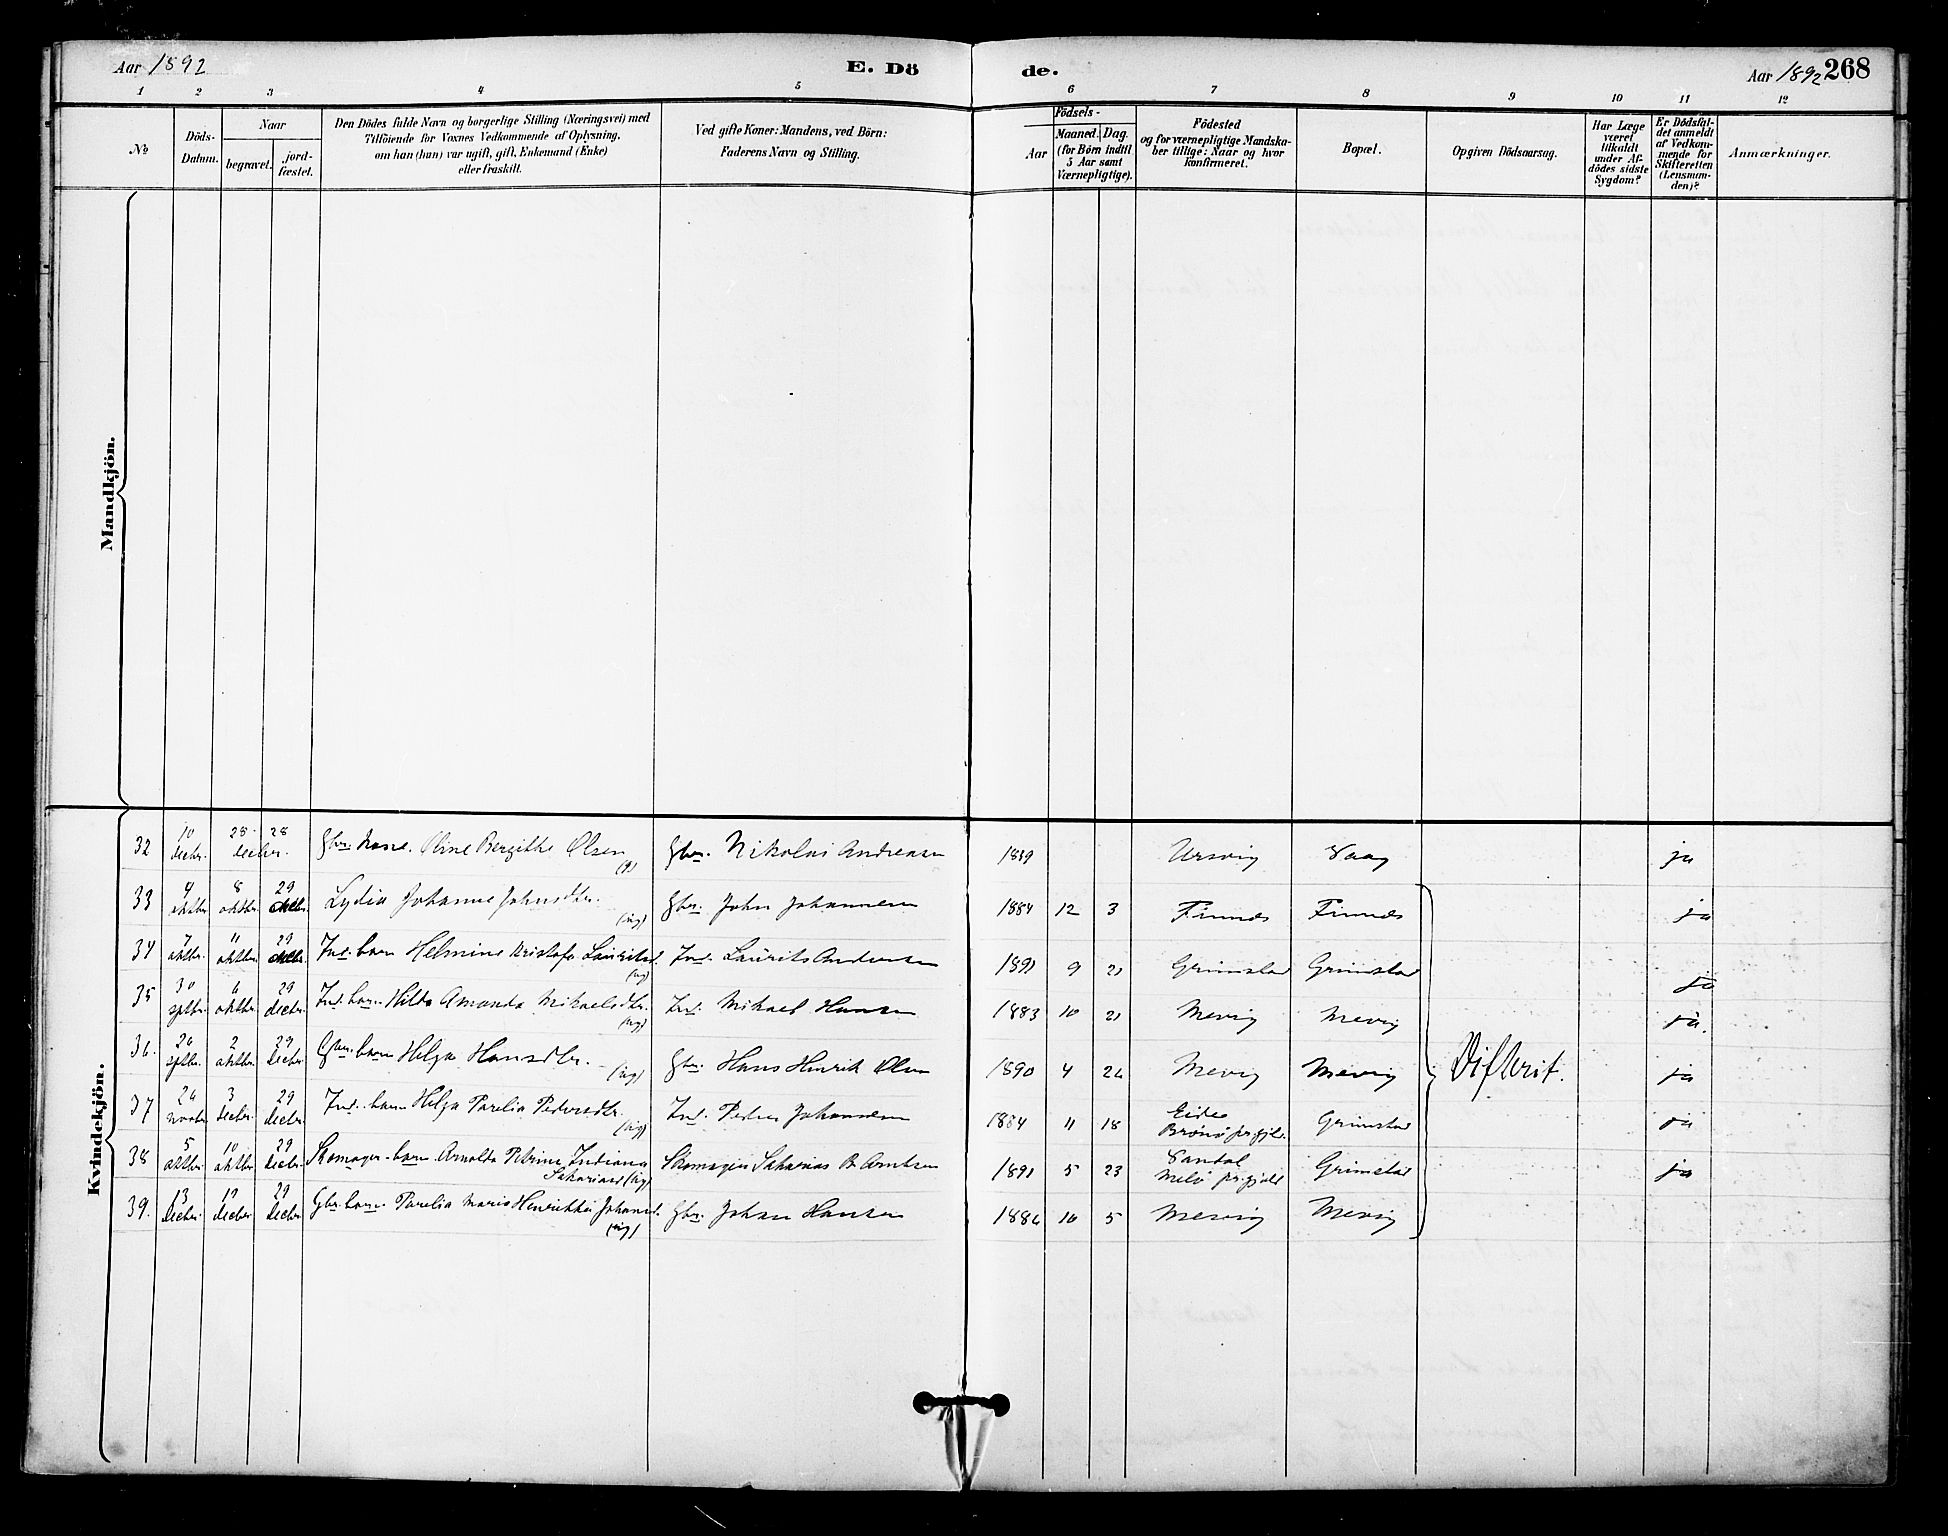 Aar 1892
E. Dö
de.
Aar 1892
268
1 2 3 4 5 6 7 8 9 10 11 12
No
Döds-
Datum.
Naar
begravet.
jord-
fæstet.
Den Dödes fulde Navn og borgerlige Stilling (Næringsvei) med
Tilföiende for Voxnes Vedkommende af Oplysning,
om han (hun) var ugift, gift, Enkemand (Enke)
eller fraskilt.
Ved gifte Koner: Mandens, ved Börn:
Faderens Navn og Stilling.
Födsels-
Aar
Maaned. Dag.
(for Börn indtil
5 Aar samt
Værnepligtige).
Födested
og for værnepligtige Mandska-
ber tillige: Naar og hvor
konfirmeret.
Bopæl.
Opgiven Dödsaarsag.
Har Læge
været
tilkaldt
under Af-
dödes sidste
Sygdom?
Er Dödsfal-
det anmeldt
af Vedkom-
mende for
Skifteretten
(Lensman-
den)?
Anmærkninger.
Mandkjön.
Kvindekjön.
32 10 decbr. 28 28 decbr. Gbr. kone. Oline Bergithe Olsen (g) Gbr. Nikolai Andreasen 1839 Ursvig Vaag ja
33 4 oktbr 8 oktbr. 29 Lydia Johanne Johnsdtr. (ug) Gbr. John Johannesen 1884 12 3 Finnes Finnes ja
34 7 oktbr. 11 oktbr 29 Ind. barn Helmine Kristofa Lauritsd. (ug) Ind. Laurits Andersen 1891 9 21 Grimstad Grimstad ja
35 30 sptbr. 6 oktbr. 29 decbr. Ind. barn Hilda Amanda Mikaelsdtr. (ug) Ind. Mikael Hansen 1883 10 21 Mevig Mevig ja.
36. 26 sptbr. 2 oktbr. 29 decbr. Gbr. barn Helga Hansdtr. (ug) Gbr. Hans Hinrik Olsen 1890 4 26 Mevig Mevig Difterit. ja
37 26 novbr 3 decbr. 29 decbr. Ind. barn Helga Parelia Pedersdtr. (ug) Ind. Peder Johannesen 1884 11 18 Eide Brønø prgjld. Grimstad ja
38 5 oktbr 10 oktbr. 29 decbr. Skomager-barn Arnolda Petrine Indiana Sakariasd (ug) Skomager Sakarias B. Arntsen 1891 5 23 Sandal Melø prgjeld Grimstad ja
39. 13 decbr. 19 decbr 29 decbr Gbr. barn. Parelia Marie Henrikka Johansd. (ug) Gbr. Johan Hansen 1886 10 5 Mevig Mevig